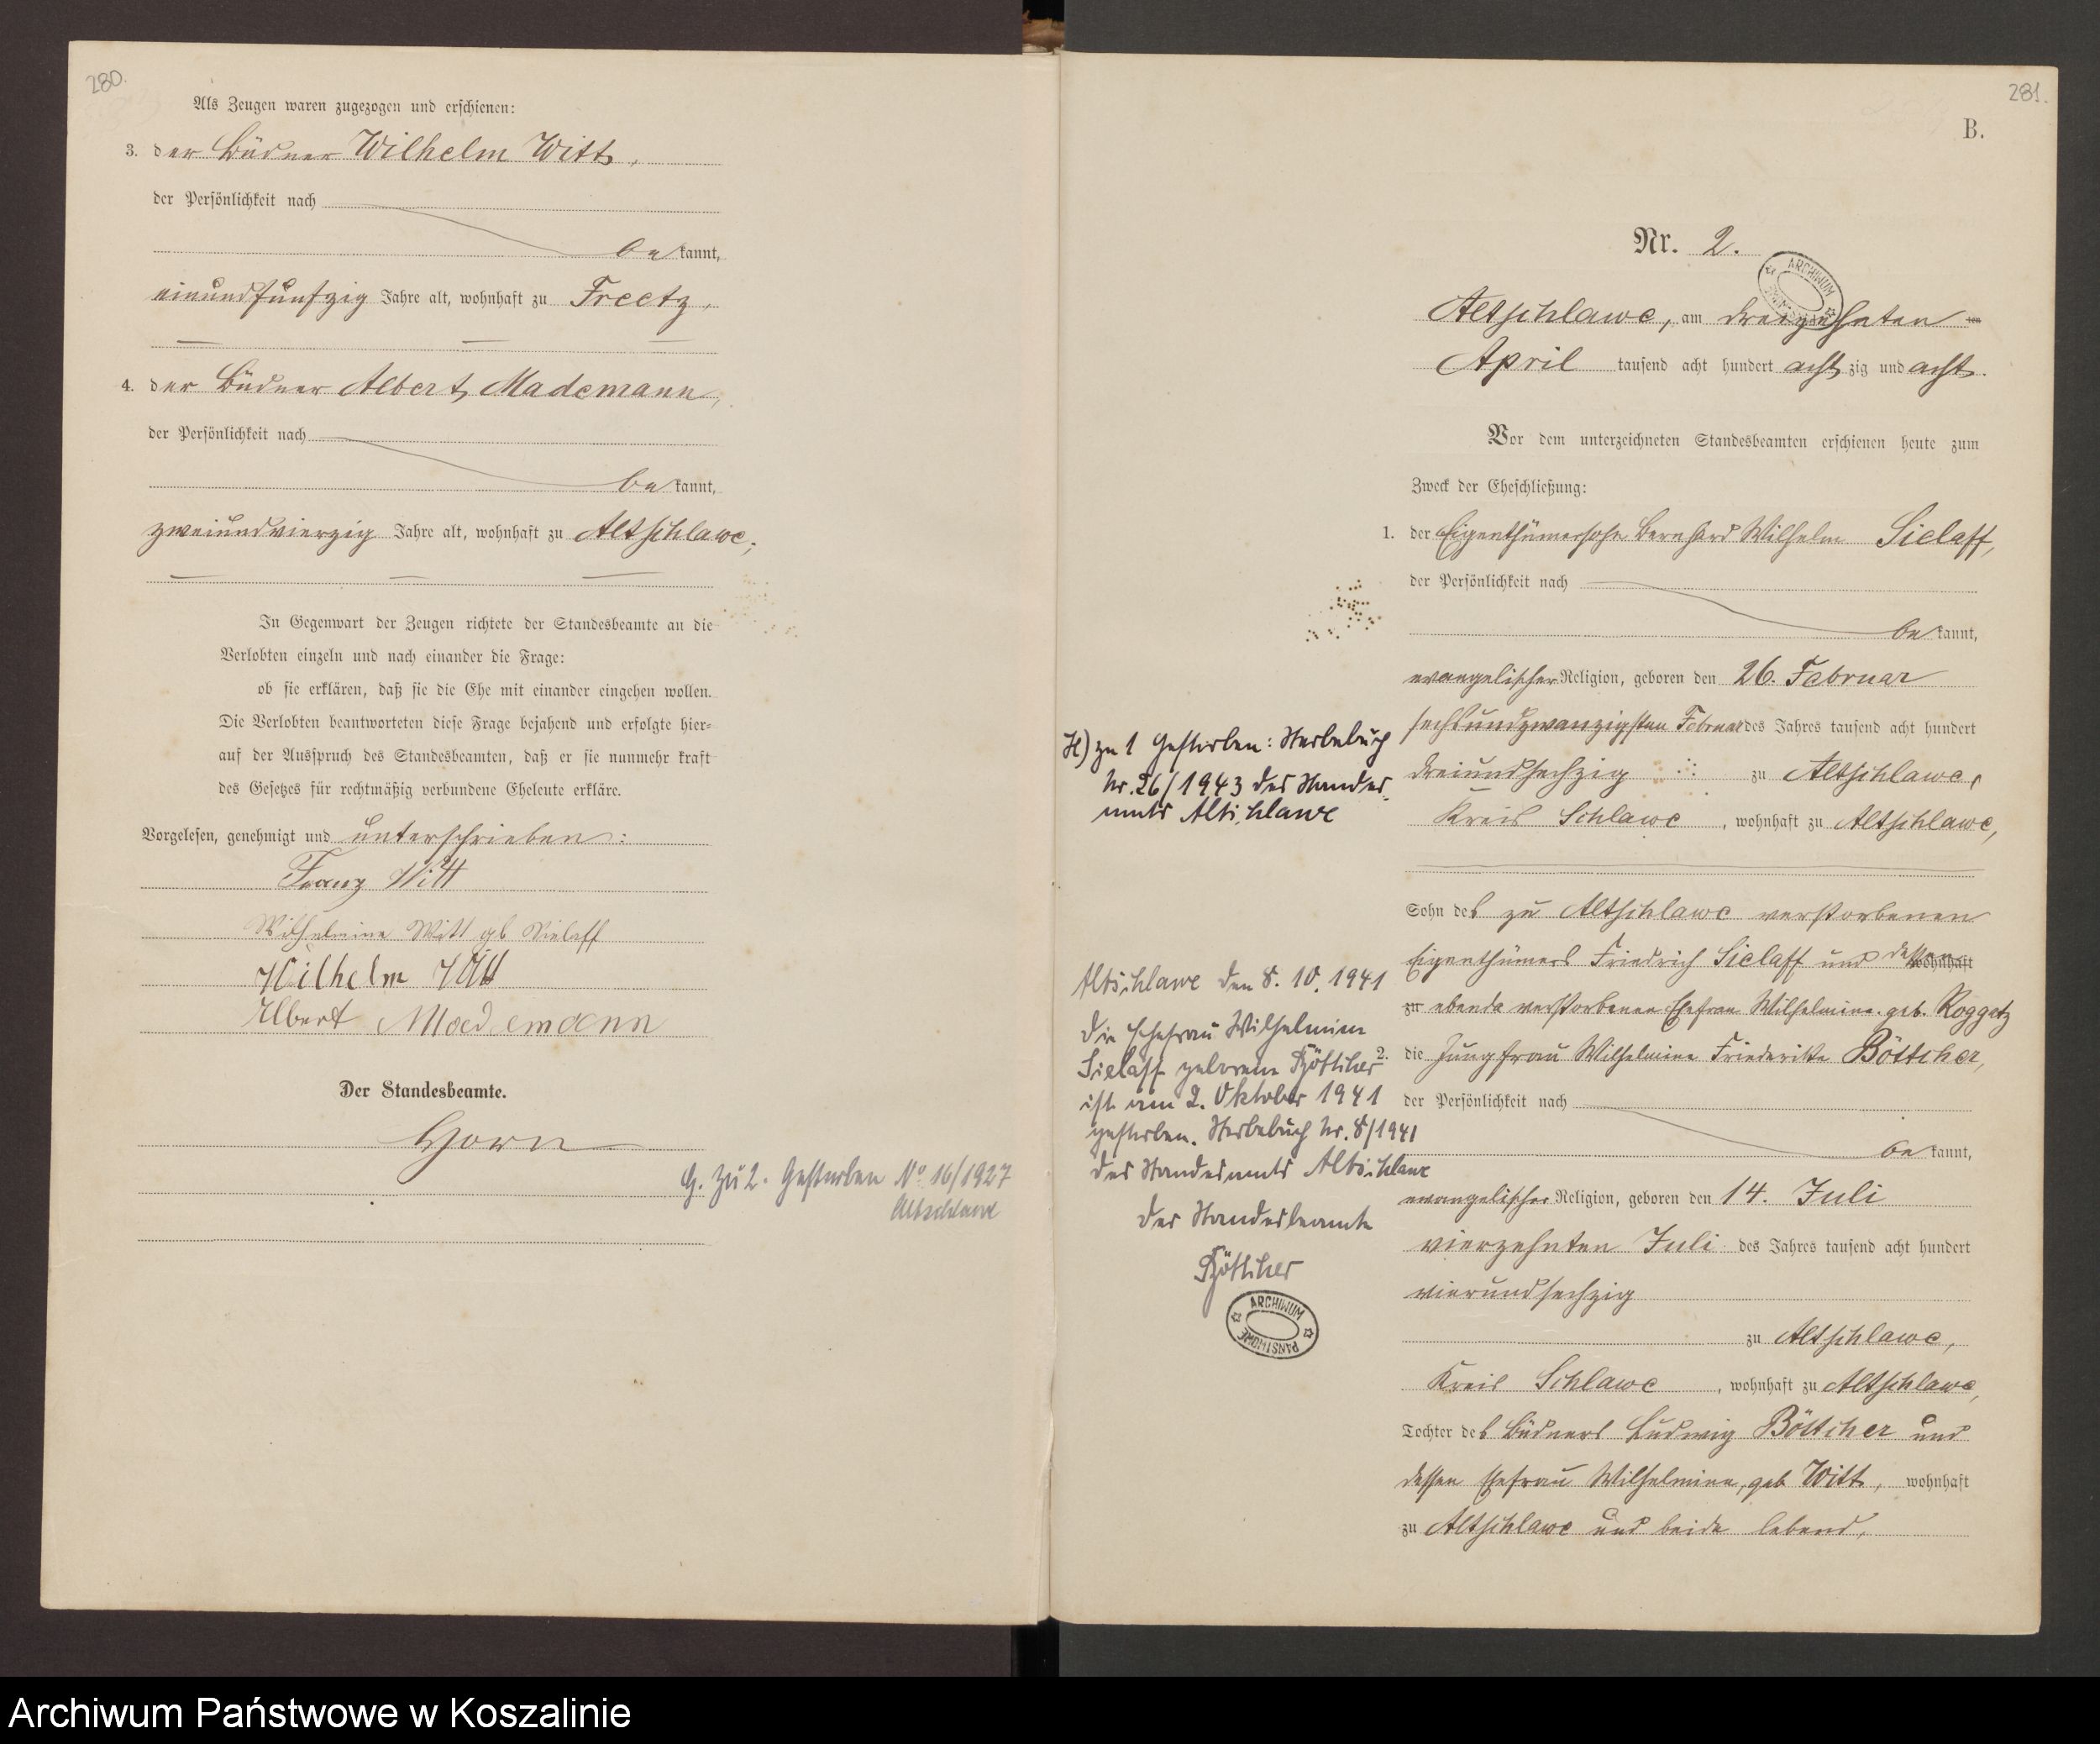 280.
Als Zeugen waren zugezogen und erschienen:
3. der Büdner Wilhelm Witt,
der Persönlichkeit nach
be kannt,
einundfünfzig Jahre alt, wohnhaft zu Freetz,
4. der Büdner Albert Mademann,
der Persönlichkeit nach
be kannt,
zweiundvierzig Jahre alt, wohnhaft zu Altschlawe;
In Gegenwart der Zeugen richtete der Standesbeamte an die
Verlobten einzeln und nach einander die Frage:
ob sie erklären, daß sie die Ehe mit einander eingehen wollen.
Die Verlobten beantworteten diese Frage bejahend und erfolgte hier-
auf der Ausspruch des Standesbeamten, daß er sie nunmehr kraft
des Gesetzes für rechtmäßig verbundene Eheleute erkläre.
Vorgelesen, genehmigt und unterschrieben:
Franz Witt
Wilhelmine Witt gb Sielaff
Wilhelm Witt
Albert Mademann
Der Standesbeamte.
Horn
G. zu 2. Gestorben No 16/1927
Altschlawe
281.
B.
Nr. 2.
ARCHIWUM
Altschlawe, am dreizehnten ten
April tausend acht hundert acht zig und acht.
Vor dem unterzeichneten Standesbeamten erschienen heute zum
Zweck der Eheschließung:
1. der Eigenthümersohn Bernhard Wilhelm Sielaff,
der Persönlichkeit nach
be kannt,
evangelischer Religion, geboren den 26. Februar
sechsundzwanzigsten Februar des Jahres tausend acht hundert
dreiundsechzig zu Altschlawe,
Kreis Schlawe, wohnhaft zu Altschlawe,
Sohn des zu Altschlawe verstorbenen
Eigenthümers Friedrich Sielaff und dessen wohnhaft
zu ebenda verstorbenen Ehefrau Wilhelmine geb. Roggatz
2. die Jungfrau Wilhelmine Friederike Böttcher,
der Persönlichkeit nach
be kannt,
evangelischer Religion, geboren den 14. Juli
vierzehnten Juli des Jahres tausend acht hundert
vierundsechzig
zu Altschlawe,
Kreis Schlawe, wohnhaft zu Altschlawe,
Tochter des Büdners Ludwig Böttcher und
dessen Ehefrau Wilhelmine, geb Witt, wohnhaft
zu Altschlawe und beide lebend,
H) zu 1 Gestorben: Sterbebuch
Nr. 26/1943 des Standes-
amts Altschlawe
Altschlawe den 8. 10. 1941
Die Ehefrau Wilhelmine
Sielaff geborene Böttcher
ist am 2. Oktober 1941
gestorben. Sterbebuch Nr. 8/1941
des Standesamts Altschlawe
Der Standesbeamte
Böttcher
ARCHIWUM
PAŃSTWOWE
Archiwum Państwowe w Koszalinie